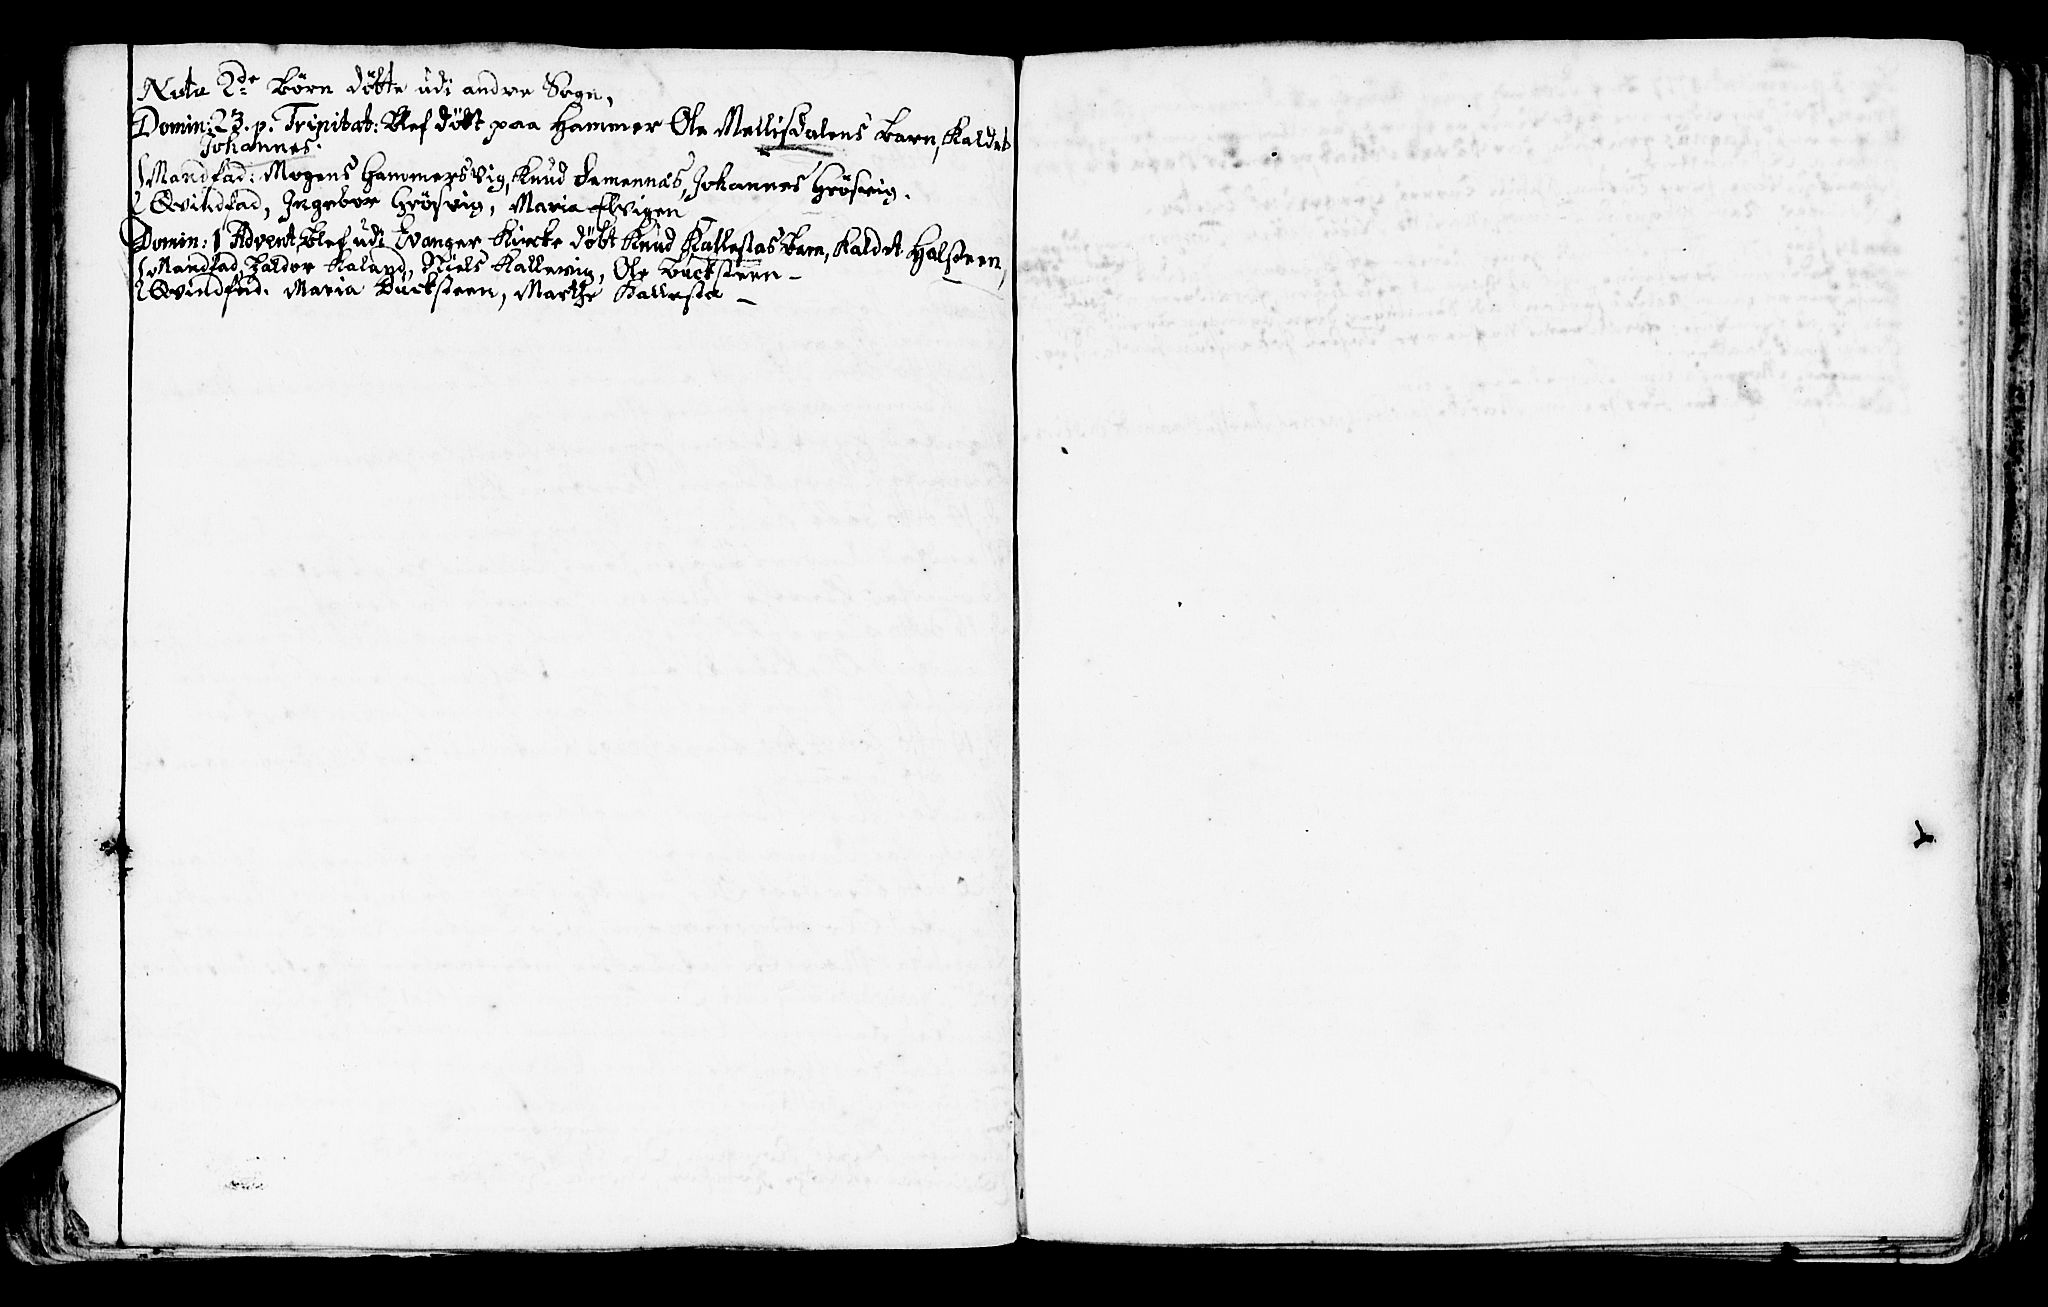 Nota 2de Børn døbte udi andre Sogn,
Domin: 23. p. Trinitat: Blef døbt paa Hammer Ole Mellisdalens Barn, Kaldet
Johannes.
Mandfad: Mogens Hammersvig, Knud Femennæs, Johannes Grøsvig.
Qvindfad, Ingebor Grøsvig, Maria Elvigen
Domin: 1 Advent, Blef udi Evanger Kircke døbt Knud Kallestas Barn, Kaldet Halsteen,
Mandfad, Haldor Kaland, Niels Kallevig, Ole Bucksteen -
Qvindfad. Maria Bucksteen, Marthe Kallesta -